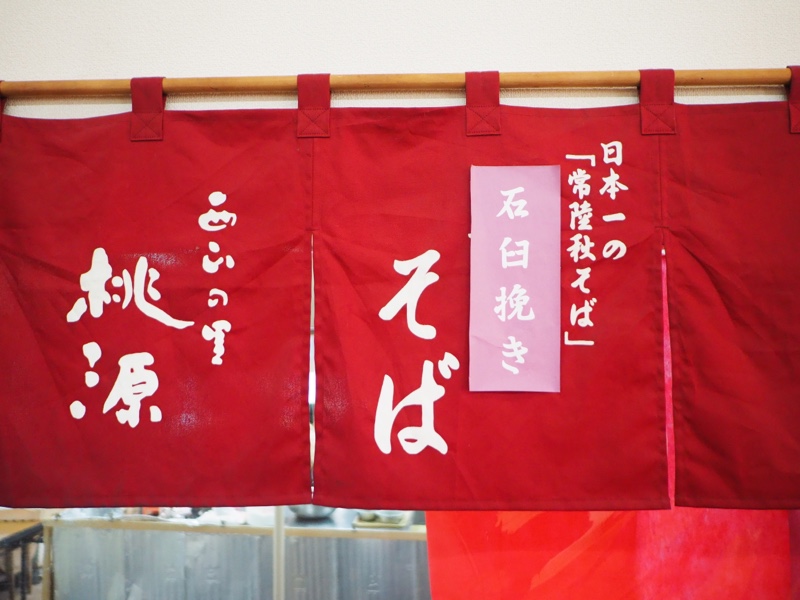 日本一の
「常陸秋そば」
石臼挽き
そば
西山の里
桃源